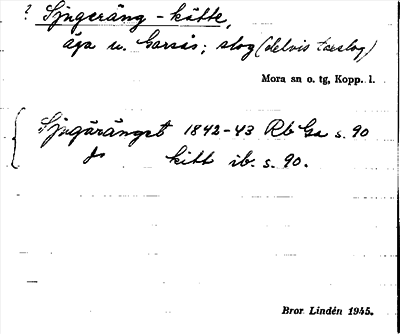 ? Sjugeräng - kätte,
äga u. Garsås; slog (delvis torslog)
Mora sn o. tg, Kopp. l.
Sjugäränget 1842-43 Rb Ga s. 90
Js kitt ib. s. 90.
Bror Lindén 1945.